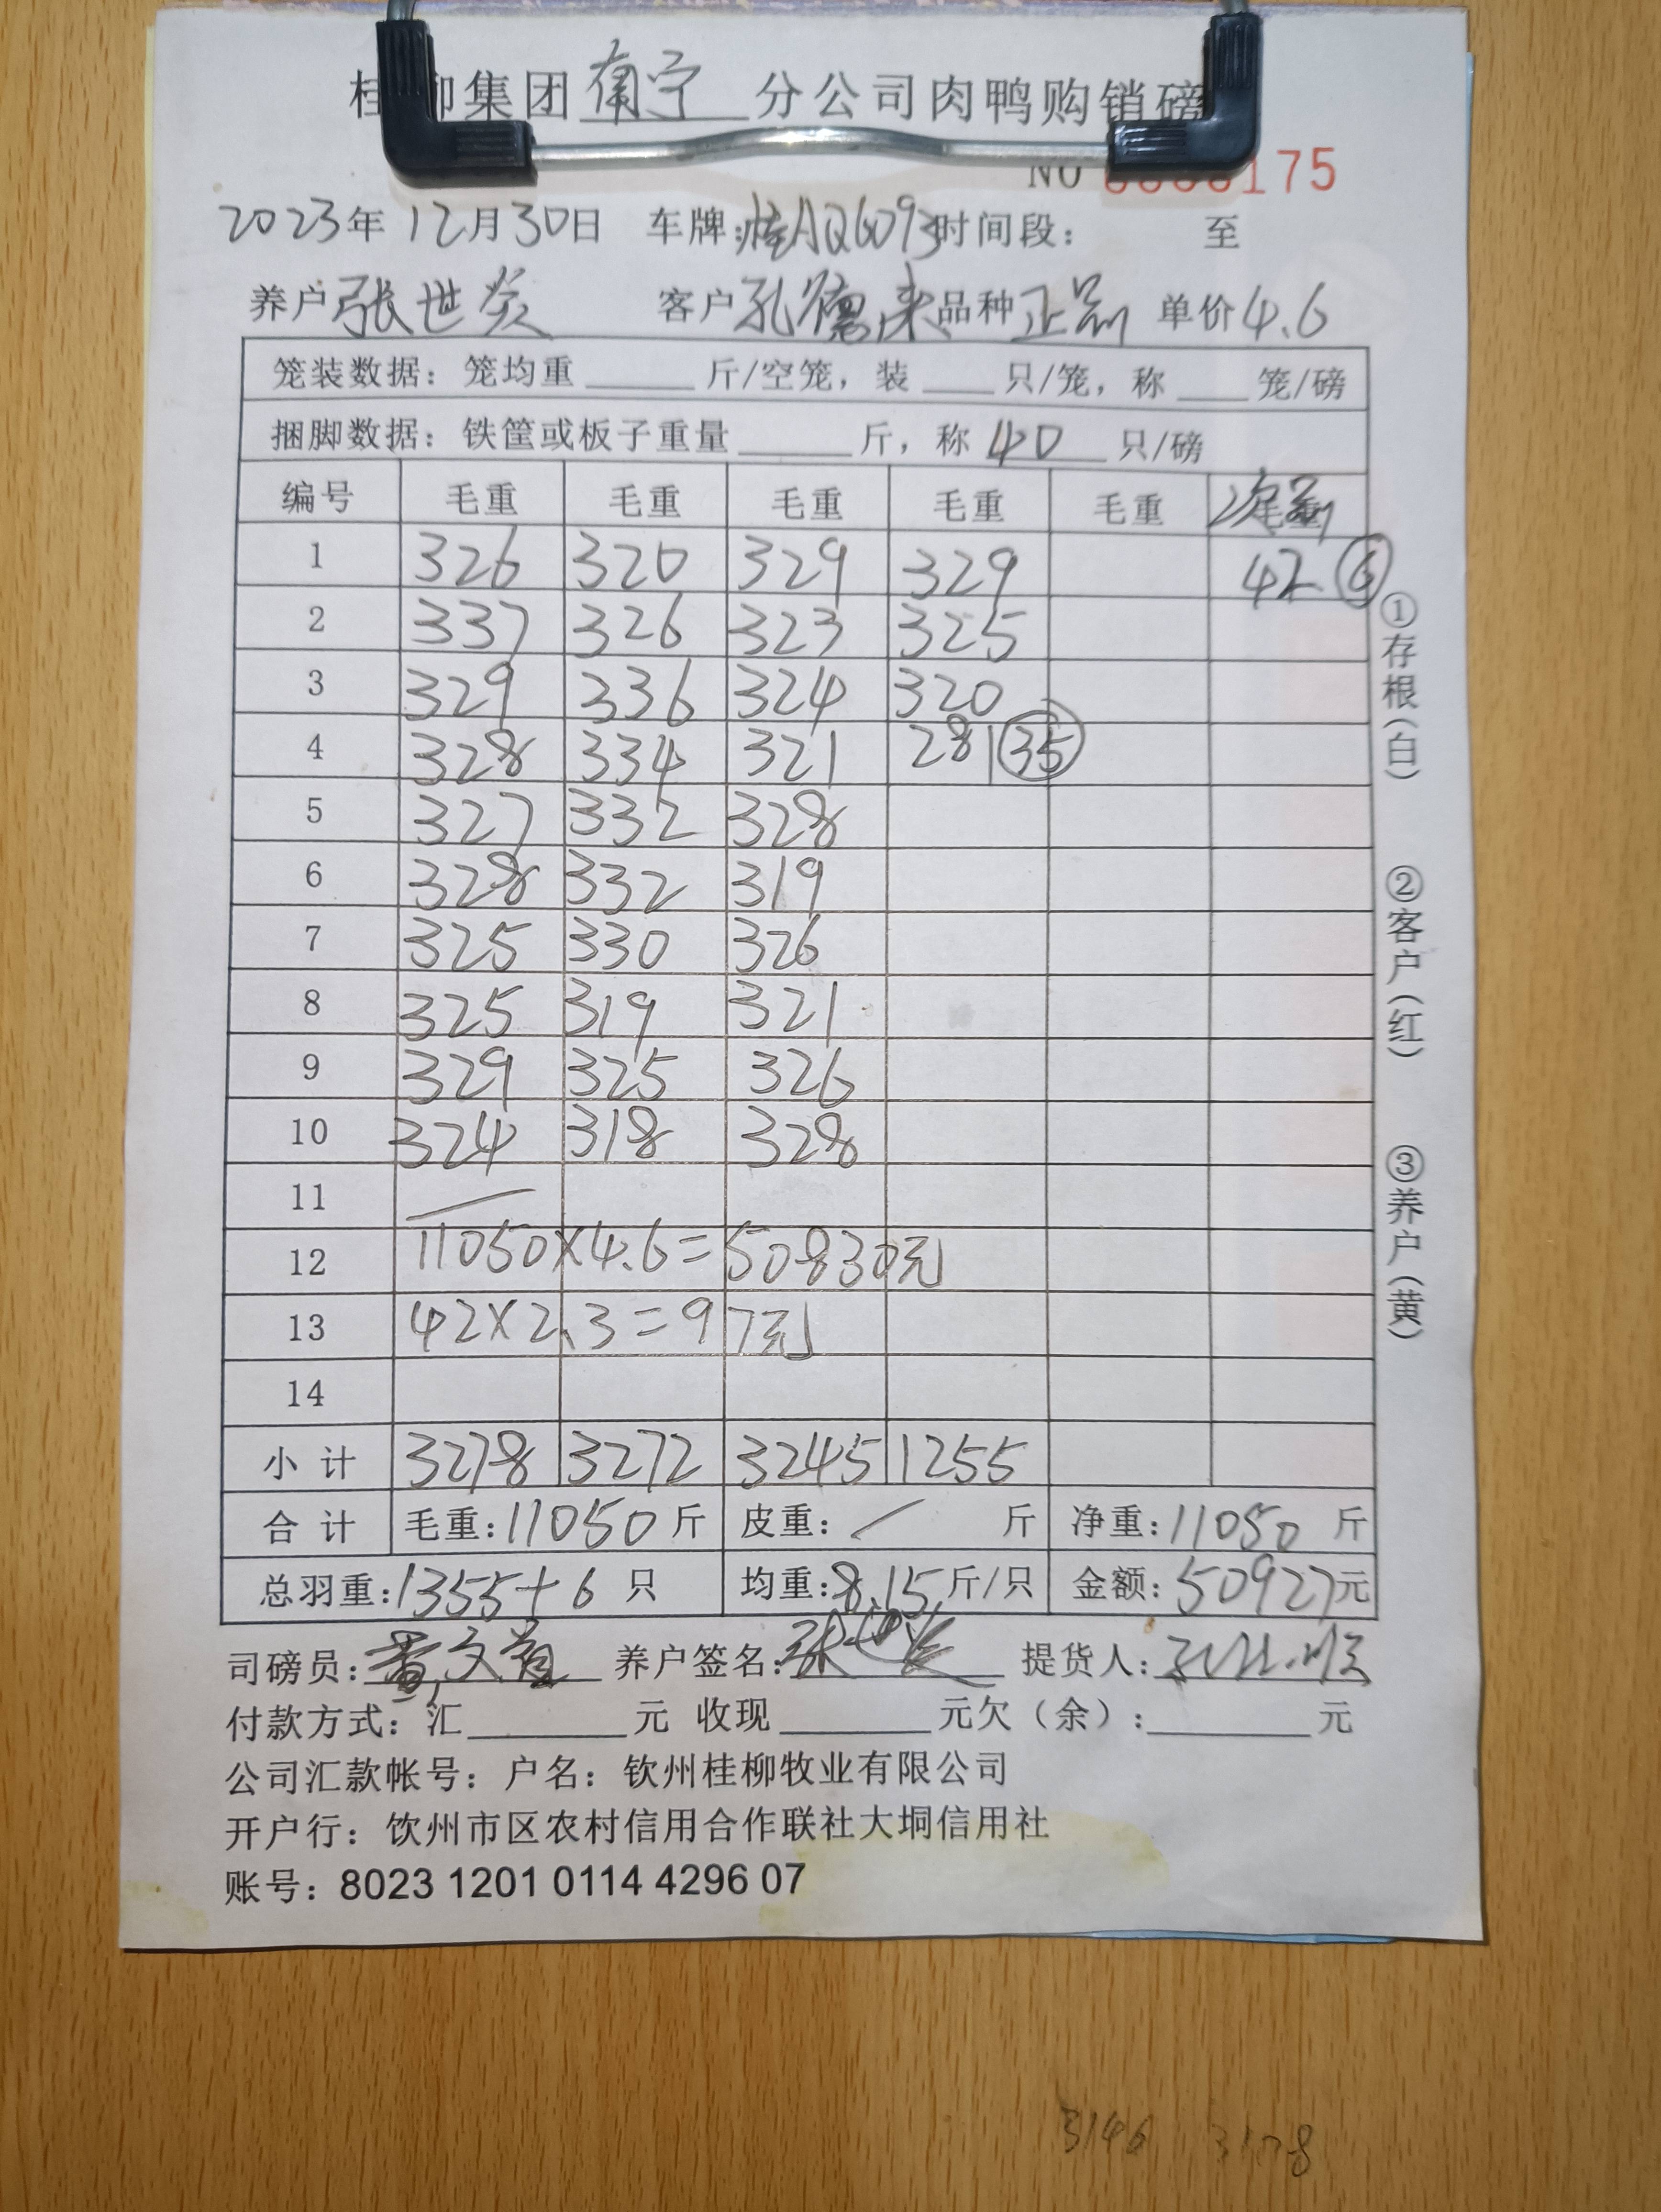 集团南宁分公司肉鸭购销磅
NO 175
2023年12月30日 车牌:桂AQ6093时间段: 至
养户张世炎 客户孔德来品种正品 单价4.6
笼装数据: 笼均重 斤/空笼,装 只/笼,称 笼/磅
捆脚数据: 铁筐或板子重量 斤,称40只/磅
编号 毛重 毛重 毛重 毛重 毛重 次品
1 326 320 329 329 42 ⑥
2 337 326 323 325
3 329 336 324 320
4 328 334 321 281 ㉟
5 327 332 328
6 328 332 319
7 325 330 326
8 325 319 321
9 329 325 326
10 324 318 328
11
12 11050×4.6=50830元
13 42×2.3=97元
14
小计 3278 3272 3245 1255
合计 毛重:11050斤 皮重:/ 斤 净重:11050斤
总羽重:1355+6 只 均重:8.15斤/只 金额:50927元
司磅员: 养户签名: 提货人:
付款方式: 汇 元 收现 元欠(余): 元
公司汇款帐号: 户名: 钦州桂柳牧业有限公司
开户行: 饮州市区农村信用合作联社大垌信用社
账号: 8023 1201 0114 4296 07
①存根(白)
②客户(红)
③养户(黄)
3146 3178